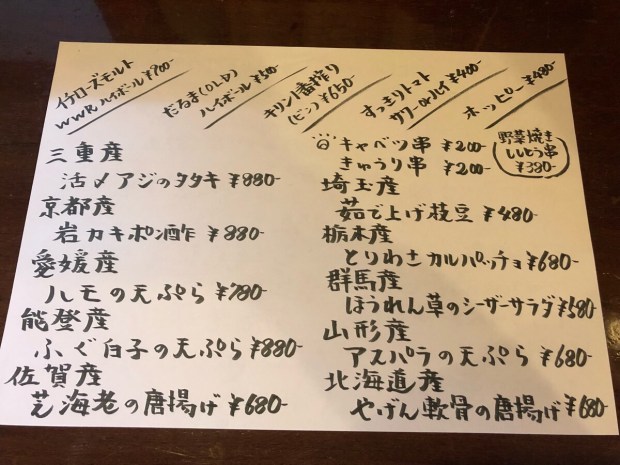 イチローズモルト
WWRハイボール ¥900-
だるま(OLD)
ハイボール ¥50-
キリン一番搾り
(ビン) ¥650-
すっきりトマト
サワーorハイ ¥400-
ホッピー ¥480-
三重産
活〆アジのタタキ ¥880-
京都産
岩カキポン酢 ¥880-
愛媛産
ハモの天ぷら ¥780-
能登産
ふぐ白子の天ぷら ¥880-
佐賀産
芝海老の唐揚げ ¥680-
キャベツ串 ¥200-
きゅうり串 ¥200-
野菜焼き
ししとう串
¥380-
埼玉産
茹で上げ枝豆 ¥480-
栃木産
とりわさカルパッチョ ¥680-
群馬産
ほうれん草のシーザーサラダ ¥580
山形産
アスパラの天ぷら ¥680-
北海道産
やげん軟骨の唐揚げ ¥680-